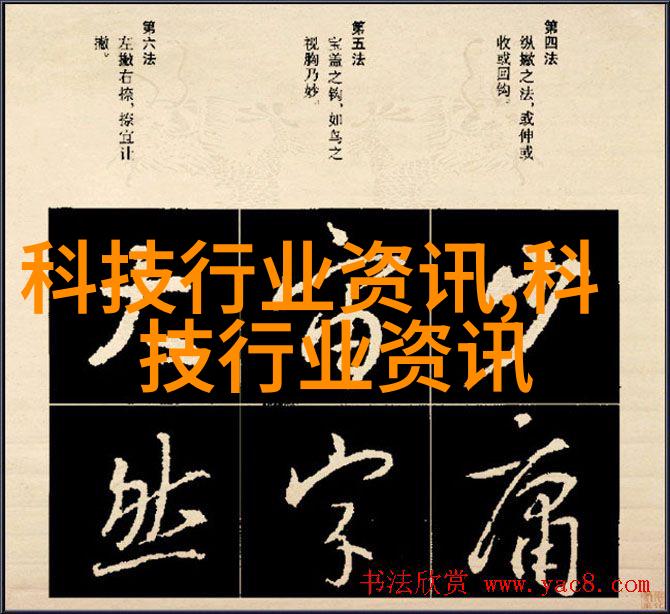 第四法
纵撇之法，或伸或
收或回钩。
第五法
宝盖之钩，如鸟之
视胸乃妙。
第六法
左撇右捺，捺宜让
撇。
科技行业资讯,科
技行业资讯
然
字
庸
书法欣赏 www.yac8.com